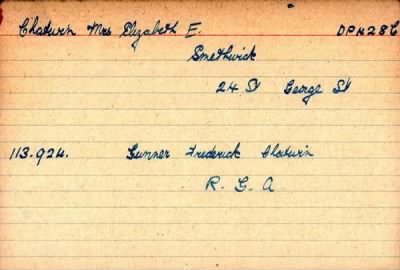 Chatwin Mrs Elizabeth E. DPH28C
Smethwick
24 St George St
113.924. Gunner Frederick Chatwin
R. G. A